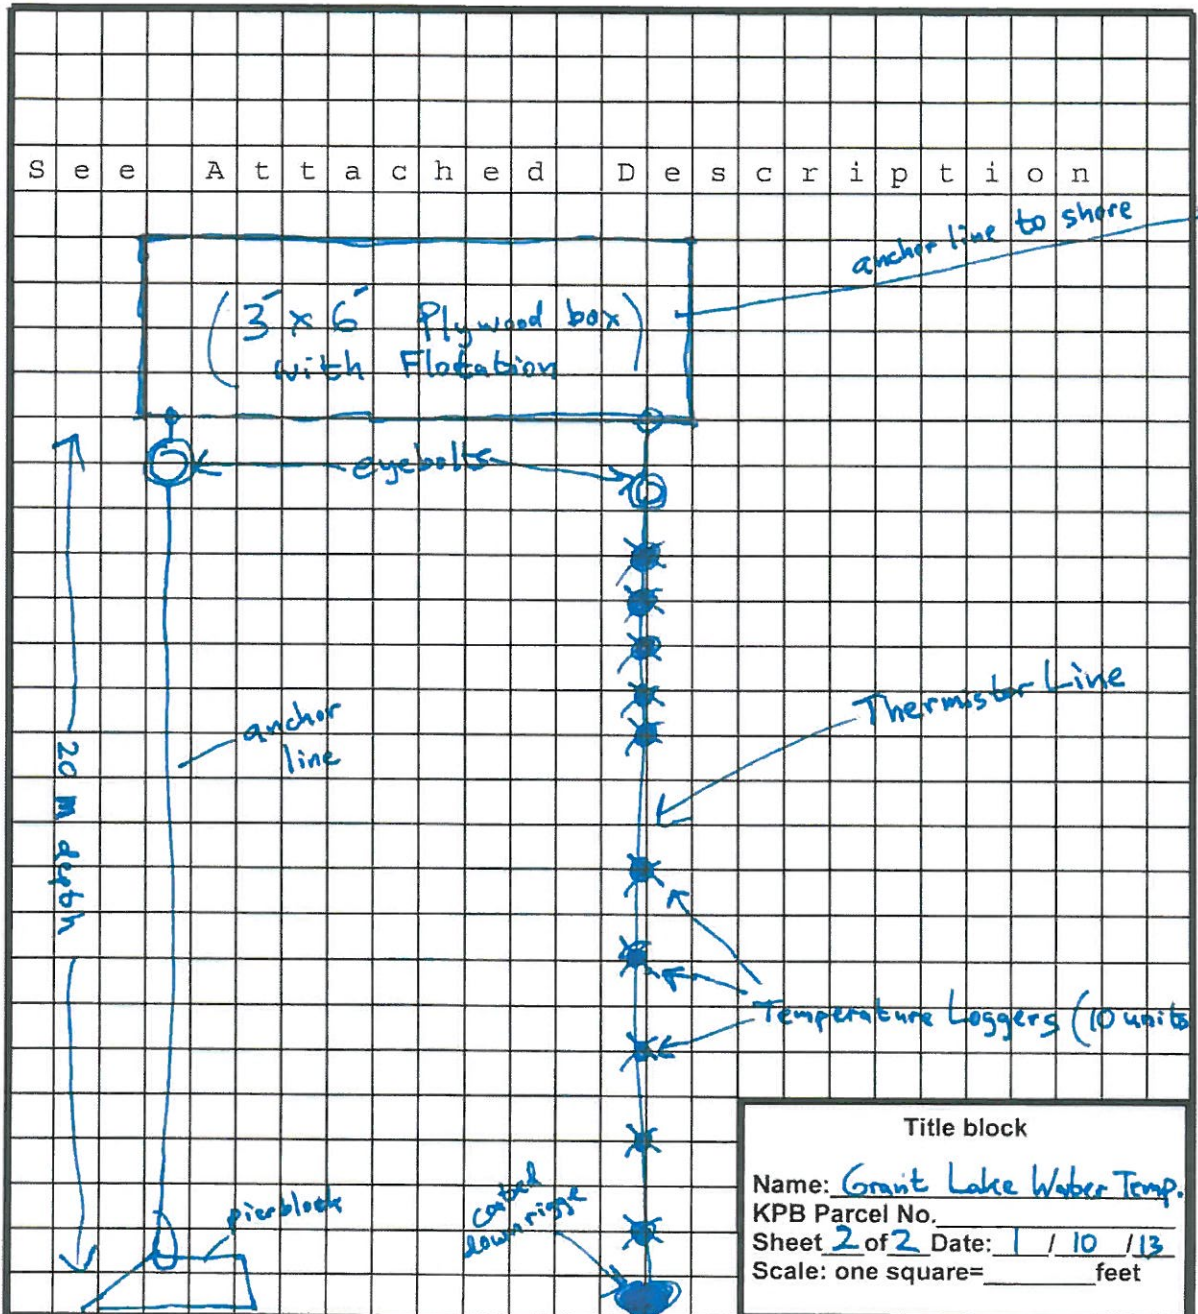 See Attached Description
anchor line to shore
(3' x 6' Plywood box
with Flotation)
eyebolts
Thermistor Line
anchor
line
20 m depth
Temperature Loggers (10 units
pierblock
coated
downrigge
Title block
Name: Grant Lake Water Temp.
KPB Parcel No.
Sheet 2 of 2 Date: 1 / 10 / 13
Scale: one square= feet